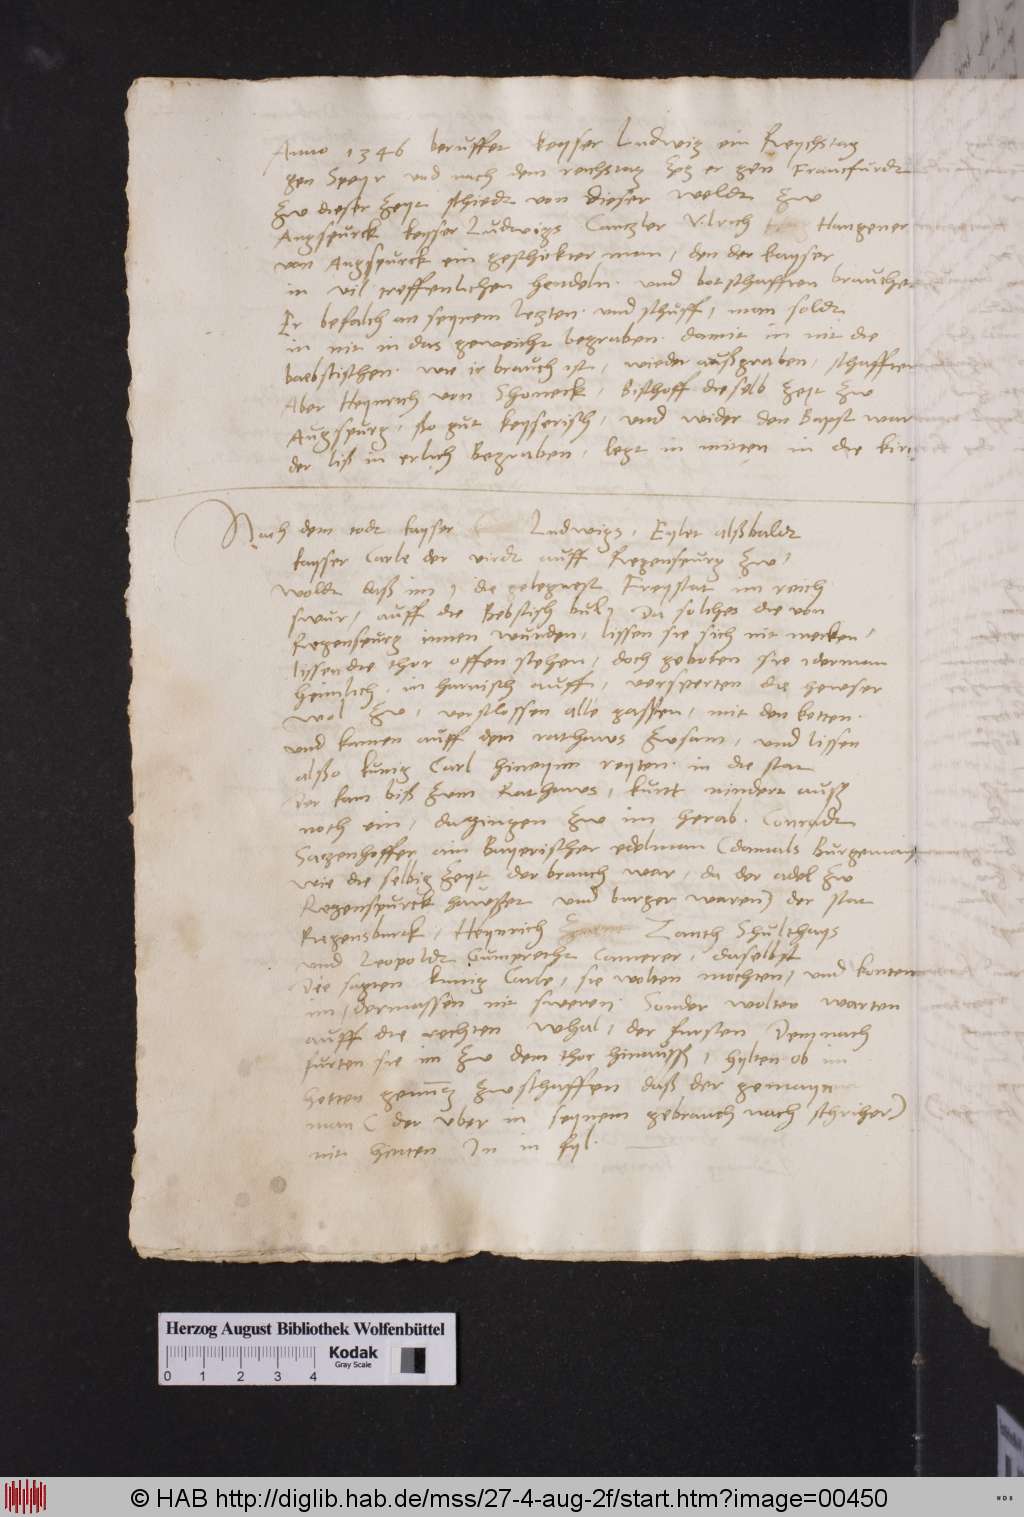 Anno 1346 beruffet keyser Ludwig ein Reychstag
gen Speyr und nach dem reichstag zog er gen Francfurdt
zw dieser zeyt schiedt von dieser weldt zw
Augspurck keyser Ludwigs Cantzler Ulrich Hangener
von Augspurck ein geschikter man, den der kayser
in vil treffenlichen hendeln und botschafften brauchet
Er befalch an seynem letzten und schuff, man soldt
in nit in das geweicht begraben damit in nit die
baebstischen wie ir brauch ist, wieder außgraben, schafften
Aber Heynrich von Shoneck, Bischoff dieselb zeyt zw
Augspurg, ßo gut keyserisch, und wider den Bapst war
der liß in erlich Begraben, legt in mitten in die kirchen
Nach dem todt kayser Ludwigs, Eylet alßbaldt
kayser Carle der virdt auff Regenspurg zw,
woldt daß im die gelegnest Freystat im reich
swur, auff die Bebstisch bul) Da solches die von
Regenspurg innen wurden, lissen sie sich nit mecken,
lissen die thor offen stehen, doch geboten sie iderman
heimlich in harnisch auff, versperten die hewser
wol zw, verschlossen alle gassen, mit den ketten
und kamen auff dem rathaws zwsam, und lissen
alßo kunig Carl hineynn reyten in die stat
Der kam biß zwm Rathaws, kunt nindert auß
noch ein, da gingen zw im herab. Conradt
Satzenhoffer ain Bayerischer edelman (damals Burgemaister
wie die selbig zeyt der brauch war, da der adel zw
Regenspurck hawsset und burger waren) der stat
Regensburck, Heynrich Zanth Shulthays
und Leopoldt Gumprecht Camerer, daselbst
Die sagten kunig Carle, sie wolten mochten, und konten
im, dermassen nit sweren. Sonder wolten warten
auff die rechten whal, der fursten Demnach
furten sie im zw dem thor hinauß, hylten ob im
hetten genung zwschaffen daß der gemayn
man (der uber in seynem gebrauch nach schrihet)
nit hinten In in fyl.
Herzog August Bibliothek Wolfenbüttel
Kodak
Gray Scale
0 1 2 3 4
© HAB http://diglib.hab.de/mss/27-4-aug-2f/start.htm?image=00450